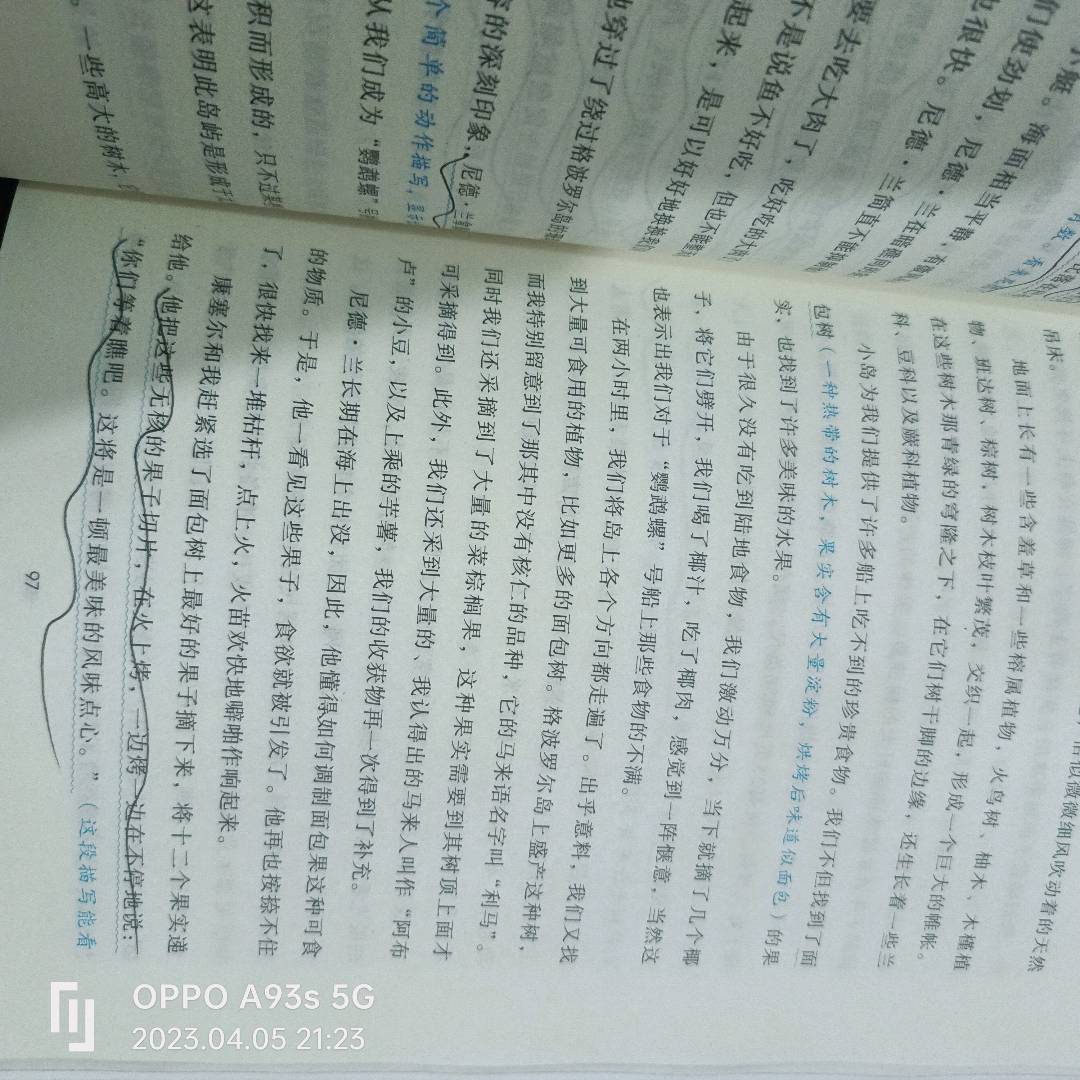 们使劲划，尼德·兰在暗
也很快。尼德·兰简直不能
要去吃大肉了，吃好吃的大
不是说鱼不好吃，但也不能
起来，是可以好好地
地穿过了绕过格波罗尔岛的
的深刻印象，尼德·兰
个简单的动作描写，显示
从我们成为“鹦鹉螺”号
积而形成的，只不过
这表明此岛屿是形成
。一些高大的树木，
似微微细风吹动着的天然
吊床。
地面上长有一些含羞草和一些榕属植物，火鸟树、柚木、木槿植
物、班达树、棕树，树木枝叶繁茂，交织一起，形成一个巨大的帷帐。
在这些树木那青绿的穹隆之下，在它们树干脚的边缘，还生长着一些兰
科、豆科以及蕨科植物。
小岛为我们提供了许多船上吃不到的珍贵食物。我们不但找到了面
包树（一种热带的树木，果实含有大量淀粉，烘烤后味道似面包）的果
实，也找到了许多美味的水果。
由于很久没有吃到陆地食物，我们激动万分，当下就摘了几个椰
子，将它们劈开，我们喝了椰汁，吃了椰肉，感觉到一阵惬意，当然这
也表示出我们对于“鹦鹉螺”号船上那些食物的不满。
在两小时里，我们将岛上各个方向都走遍了。出乎意料，我们又找
到大量可食用的植物，比如更多的面包树。格波罗尔岛上盛产这种树，
而我特别留意到了那其中没有核仁的品种，它的马来语名字叫“利马”。
同时我们还采摘到了大量的菜棕榈果，这种果实需要到其树顶上面才
可采摘得到。此外，我们还采到大量的、我认得出的马来人叫作“阿布
卢”的小豆，以及上乘的芋薯，我们的收获物再一次得到了补充。
尼德·兰长期在海上出没，因此，他懂得如何调制面包果这种可食
的物质。于是，他一看见这些果子，食欲就被引发了。他再也按捺不住
了，很快找来一堆枯杆，点上火，火苗欢快地噼啪作响起来。
康塞尔和我赶紧选了面包树上最好的果子摘下来，将十二个果实递
给他。他把这些无核的果子切片，在火上烤，一边烤一边在不停地说：
“你们等着瞧吧。这将是一顿最美味的风味点心。”（这段描写能看
97
OPPO A93s 5G
2023.04.05 21:23